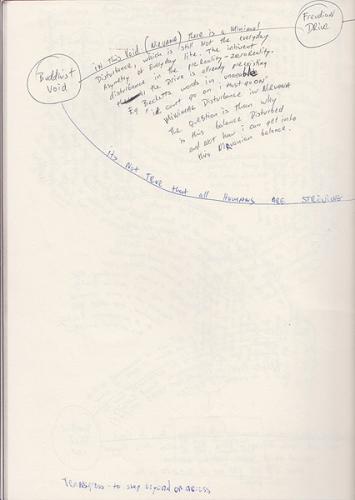 Buddhist
Void
Freudian
Drive
in this Void (Nirvana) there is a Minimal
Disturbance, which is still Not the everyday
Asymetry of Everyday life. The inherent
disturbance in the pre reality - zero reality.
the Drive is already preexisting
Eg Becketts words in unnamable
"i cant go on i must go on"
Minimal Disturbance in Nirvana
The question is than why
is this balance Disturbed
and Not how i can get into
this Nirvanian balance.
its Not True that all Humans are striving
Transgress - to step beyond or across